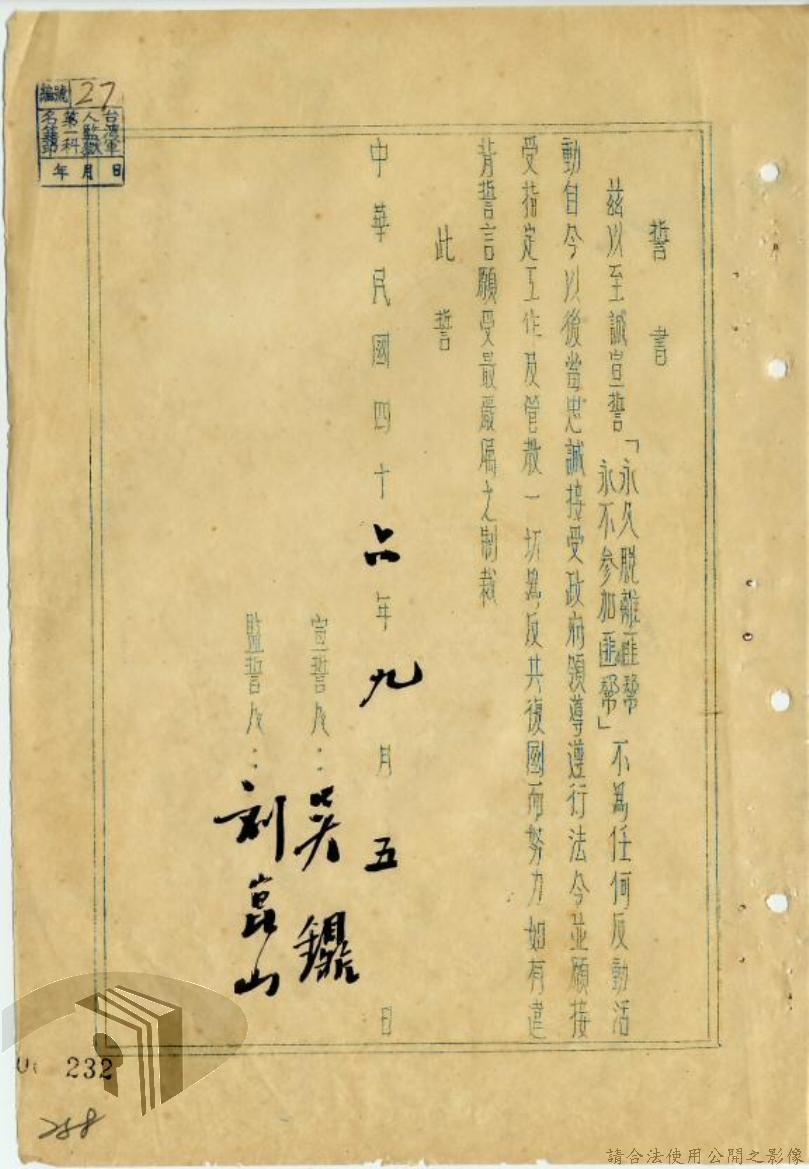 誓書
茲以至誠宣誓「永久脫離匪幫
永不參加匪幫」不為任何反動活
動自今以後當忠誠接受政府領導遵行法令並願接
受指定工作及管教一切為反共復國而努力如有違
背誓言願受最嚴厲之制裁
此誓
中華民國四十六年九月五日
宣誓人：吳
監誓人：劉崑山
編號 27
台灣軍
人監獄
第一科
名籍
年月日
232
288
請合法使用公開之影像